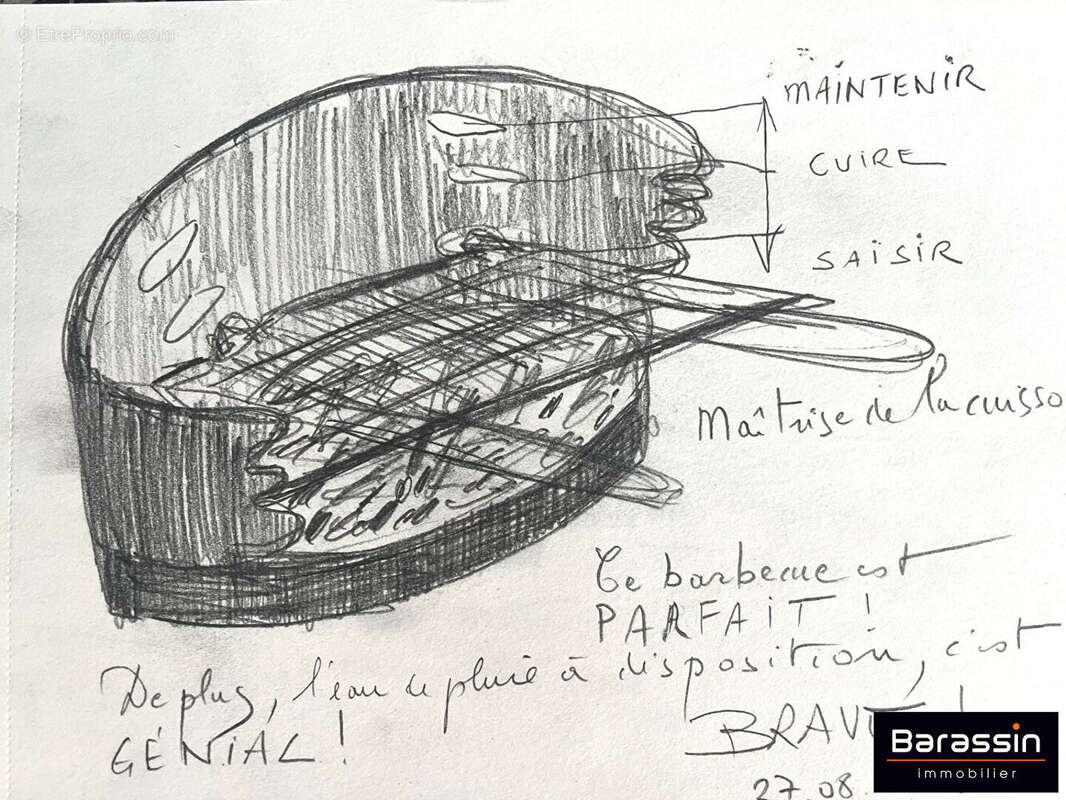 © EtreProprio.com
MAINTENIR
CUIRE
SAISIR
Maîtrise de la cuisso
Ce barbecue est
PARFAIT !
De plus, l'eau de pluie à disposition, c'est
GÉNIAL !
BRAVO !
27.08.
Barassin
immobilier